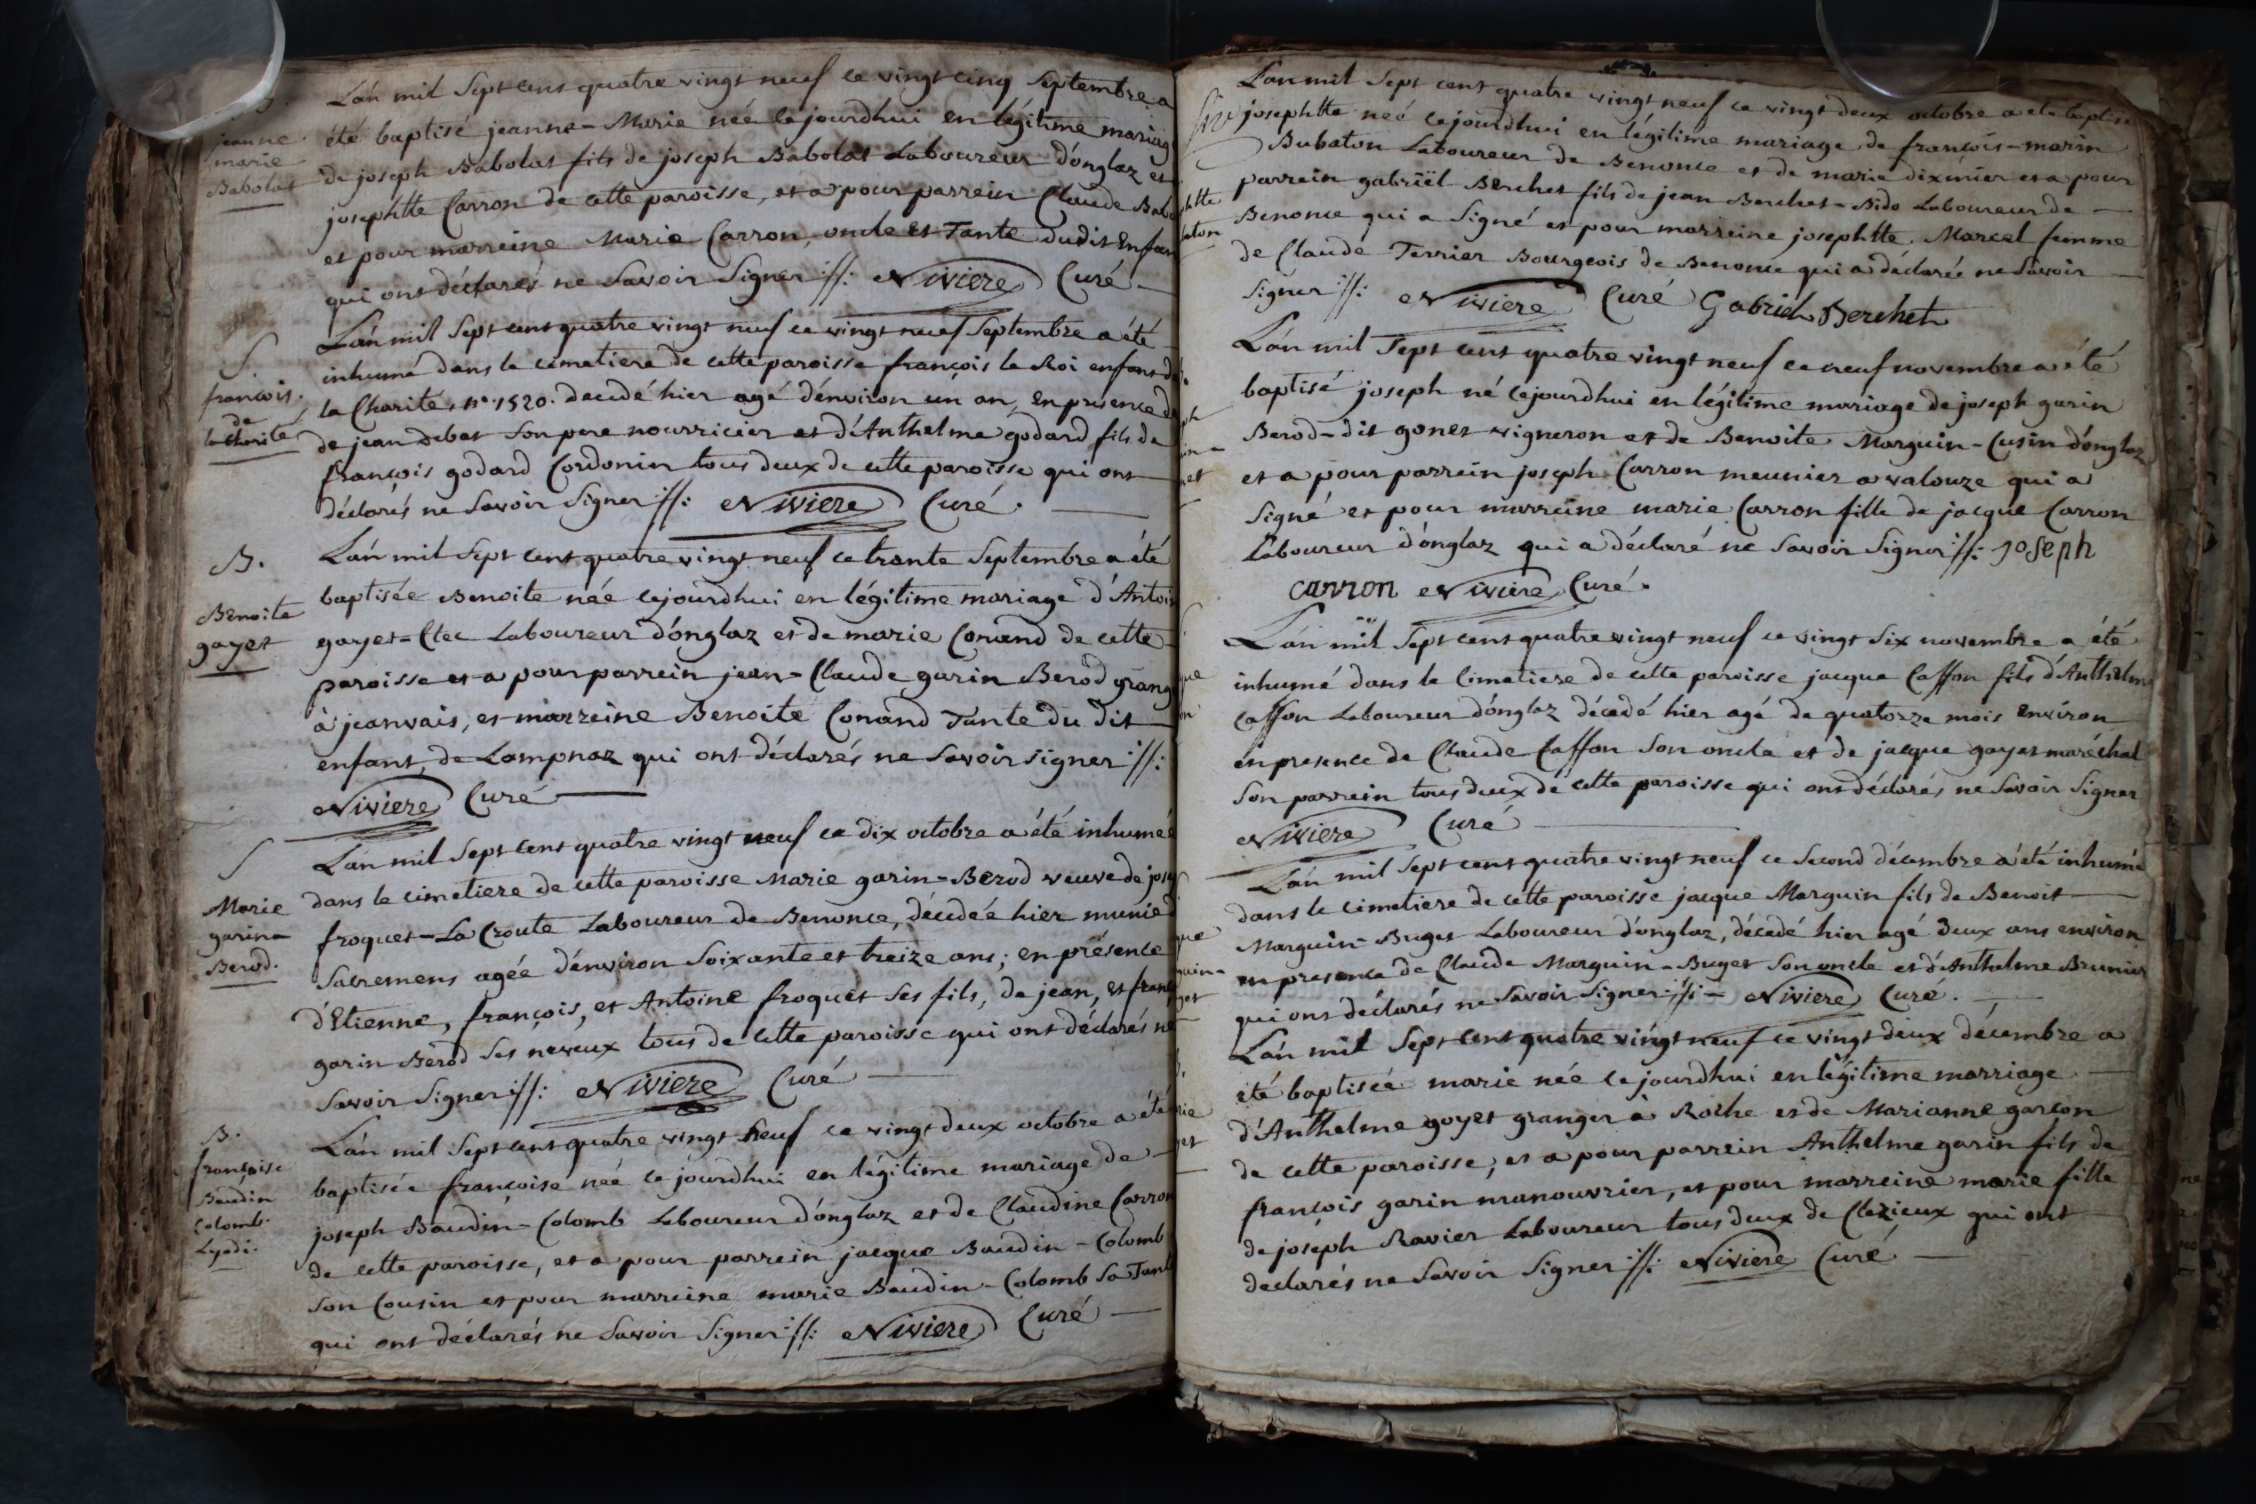 B.
jeanne
marie
Babolat
L'an mil Sept cent quatre vingt neuf ce vingt cinq Septembre a
été baptisé jeanne-Marie née cejourdhui en légitime mariag
de joseph Babolat fils de joseph Babolat Laboureur d'onglaz et
josephtte Carron de cette paroisse, et a pour parrein Claude Babo
et pour marreine Marie Carron, oncle et Tante dudit Enfan
qui ont déclarés ne Savoir Signer ://: Niviere Curé
S.
françois
de
la Charité
L'an mil Sept cent quatre vingt neuf ce vingt neuf Septembre a été
inhumé dans le cimetiere de cette paroisse françois le Roi enfant d
la Charité, n° 1520. decedé hier agé d'environ un an, En presence
de jean debat Son pere nourricier et d'Anthelme godard fils de
françois godard Cordonin tous deux de cette paroisse qui ont
déclarés ne Savoir Signer ://: Niviere Curé.
B.
Benoite
gayet
L'an mil Sept cent quatre vingt neuf ce trente Septembre a été
baptisée Benoite née cejourdhui en légitime mariage d'Antoi
gayet-Clec Laboureur d'onglaz et de marie Conand de cette
paroisse et a pour parrein jean-Claude garin Berod grang
à jeanvais, et marreine Benoite Conand Tante du dit
enfant, de Lompnaz qui ont déclarés ne Savoir signer ://:
Niviere Curé
S
Marie
garin-
Berod.
L'an mil Sept cent quatre vingt neuf ce dix octobre a été inhumée
dans le cimetiere de cette paroisse Marie garin-Berod veuve de jos
froquet-La Croute Laboureur de Benonce, décedée hier munie d
Sacremens agée d'environ Soixante et treize ans; en présence
d'Etienne, françois, et Antoine froquet Ses fils, de jean, et franç
garin Berod Ses neveux tous de cette paroisse qui ont déclarés ne
Savoir Signer ://: Niviere Curé
B.
françoise
Baudin
Colomb.
Lyadi.
L'an mil Sept cent quatre vingt neuf ce vingt deux octobre a été
baptisée françoise née ce jourdhui en légitime mariage de
joseph Baudin-Colomb Laboureur d'onglaz et de Claudine Carron
de cette paroisse, et a pour parrein jacque Baudin-Colomb
Son Cousin et pour marreine marie Baudin-Colomb Sa Tant
qui ont déclarés ne Savoir Signer ://: Niviere Curé
L'an mil Sept cent quatre vingt neuf ce vingt deux octobre a été baptisé
josephtte née cejourdhui en légitime mariage de françois-marin
Bubaton Laboureur de Benonce et de marie diximier et a pour
parrein gabriël Berchet fils de jean Berchet-Bido Laboureur de
Benonce qui a Signé et pour marreine josephtte Marcel femme
de Claude Terrier Bourgeois de Benonce qui a déclarée ne Savoir
Signer ://: Niviere Curé Gabriel Berchet
L'an mil Sept cent quatre vingt neuf ce neuf novembre a été
baptisé joseph né cejourdhui en légitime mariage de joseph garin
Berod-dit gonet vigneron et de Benoite Marguin-Cusin d'onglaz
et a pour parrein joseph Carron meunier a valouze qui a
Signé et pour marreine marie Carron fille de jacque Carron
Laboureur d'onglaz qui a déclaré ne Savoir Signer ://: joseph
carron Niviere Curé.
L'an mil Sept cent quatre vingt neuf ce vingt Six novembre a été
inhumé dans le Cimetiere de cette paroisse jacque Caffon fils d'Anthelme
Caffon Laboureur d'onglaz décedé hier agé de quatorze mois Environ
en presence de Claude Caffon Son oncle et de jacque gayet maréchal
Son parrein tous deux de cette paroisse qui ont déclarés ne Savoir Signer
Niviere Curé
L'an mil Sept cent quatre vingt neuf ce Second décembre a été inhumé
dans le cimetiere de cette paroisse jacque Marguin fils de Benoit
Marguin-Buget Laboureur d'onglaz, décedé hier agé deux ans environ
en presence de Claude Marguin-Buget Son oncle et d'Anthelme Brunier
qui ont déclarés ne Savoir Signer ://: Niviere Curé.
L'an mil Sept cent quatre vingt neuf ce vingt deux décembre a
été baptisée marie née ce jourdhui en légitime marriage
d'Anthelme goyet granger à Roche et de Marianne garcon
de cette paroisse, et a pour parrein Anthelme garin fils de
françois garin manouvrier, et pour marreine marie fille
de joseph Ravier Laboureur tous deux de Clezieux qui ont
declarés ne Savoir Signer ://: Niviere Curé